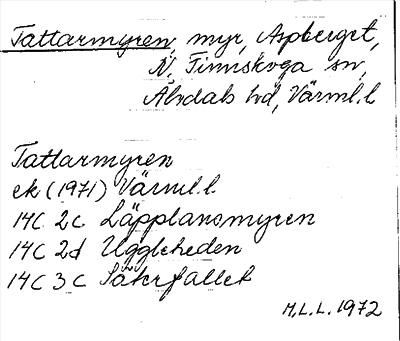 Tattarmyren, myr, Aspberget,
N, Finnskoga sn,
Älvdals hd, Värml. l.
Tattarmyren
ek (1971) Värml. l.
14C 2c Läpplansmyren
14C 2d Uggleheden
14C 3c Säterfallet
M.L.L. 1972